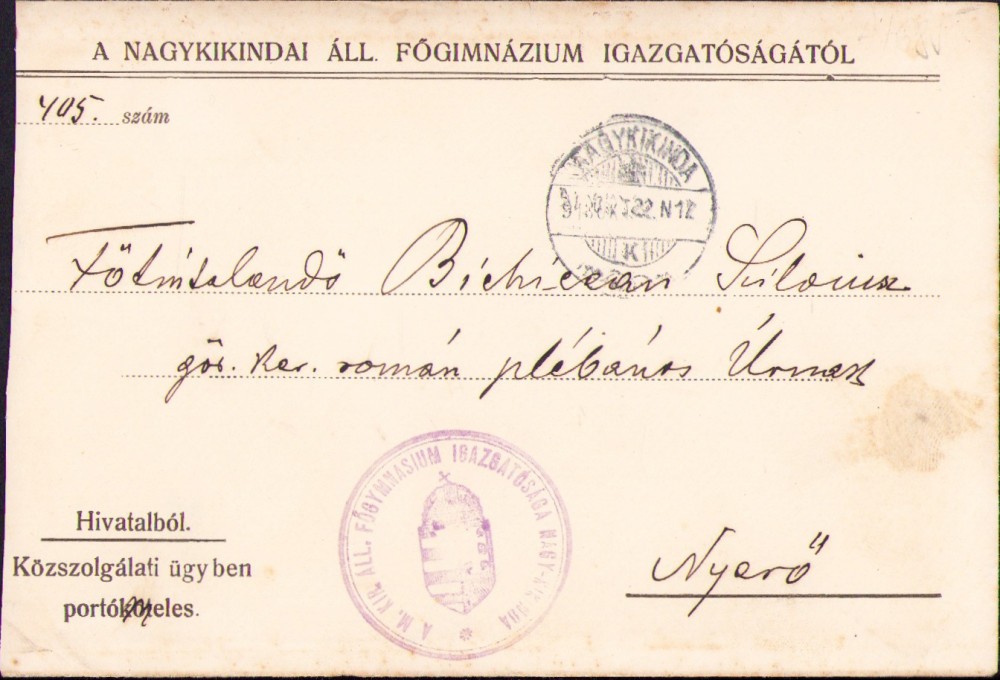 A NAGYKIKINDAI ÁLL. FŐGIMNÁZIUM IGAZGATÓSÁGÁTÓL
405. szám
NAGYKIKINDA
22. N 12
K
Főtisztelendő
gör. ker. román plébános Úrnak
A M. KIR. ÁLL. FŐGYMNASIUM IGAZGATÓSÁGA NAGY-KIKINDA
Hivatalból.
Közszolgálati ügyben
portóköteles.
Nyerő